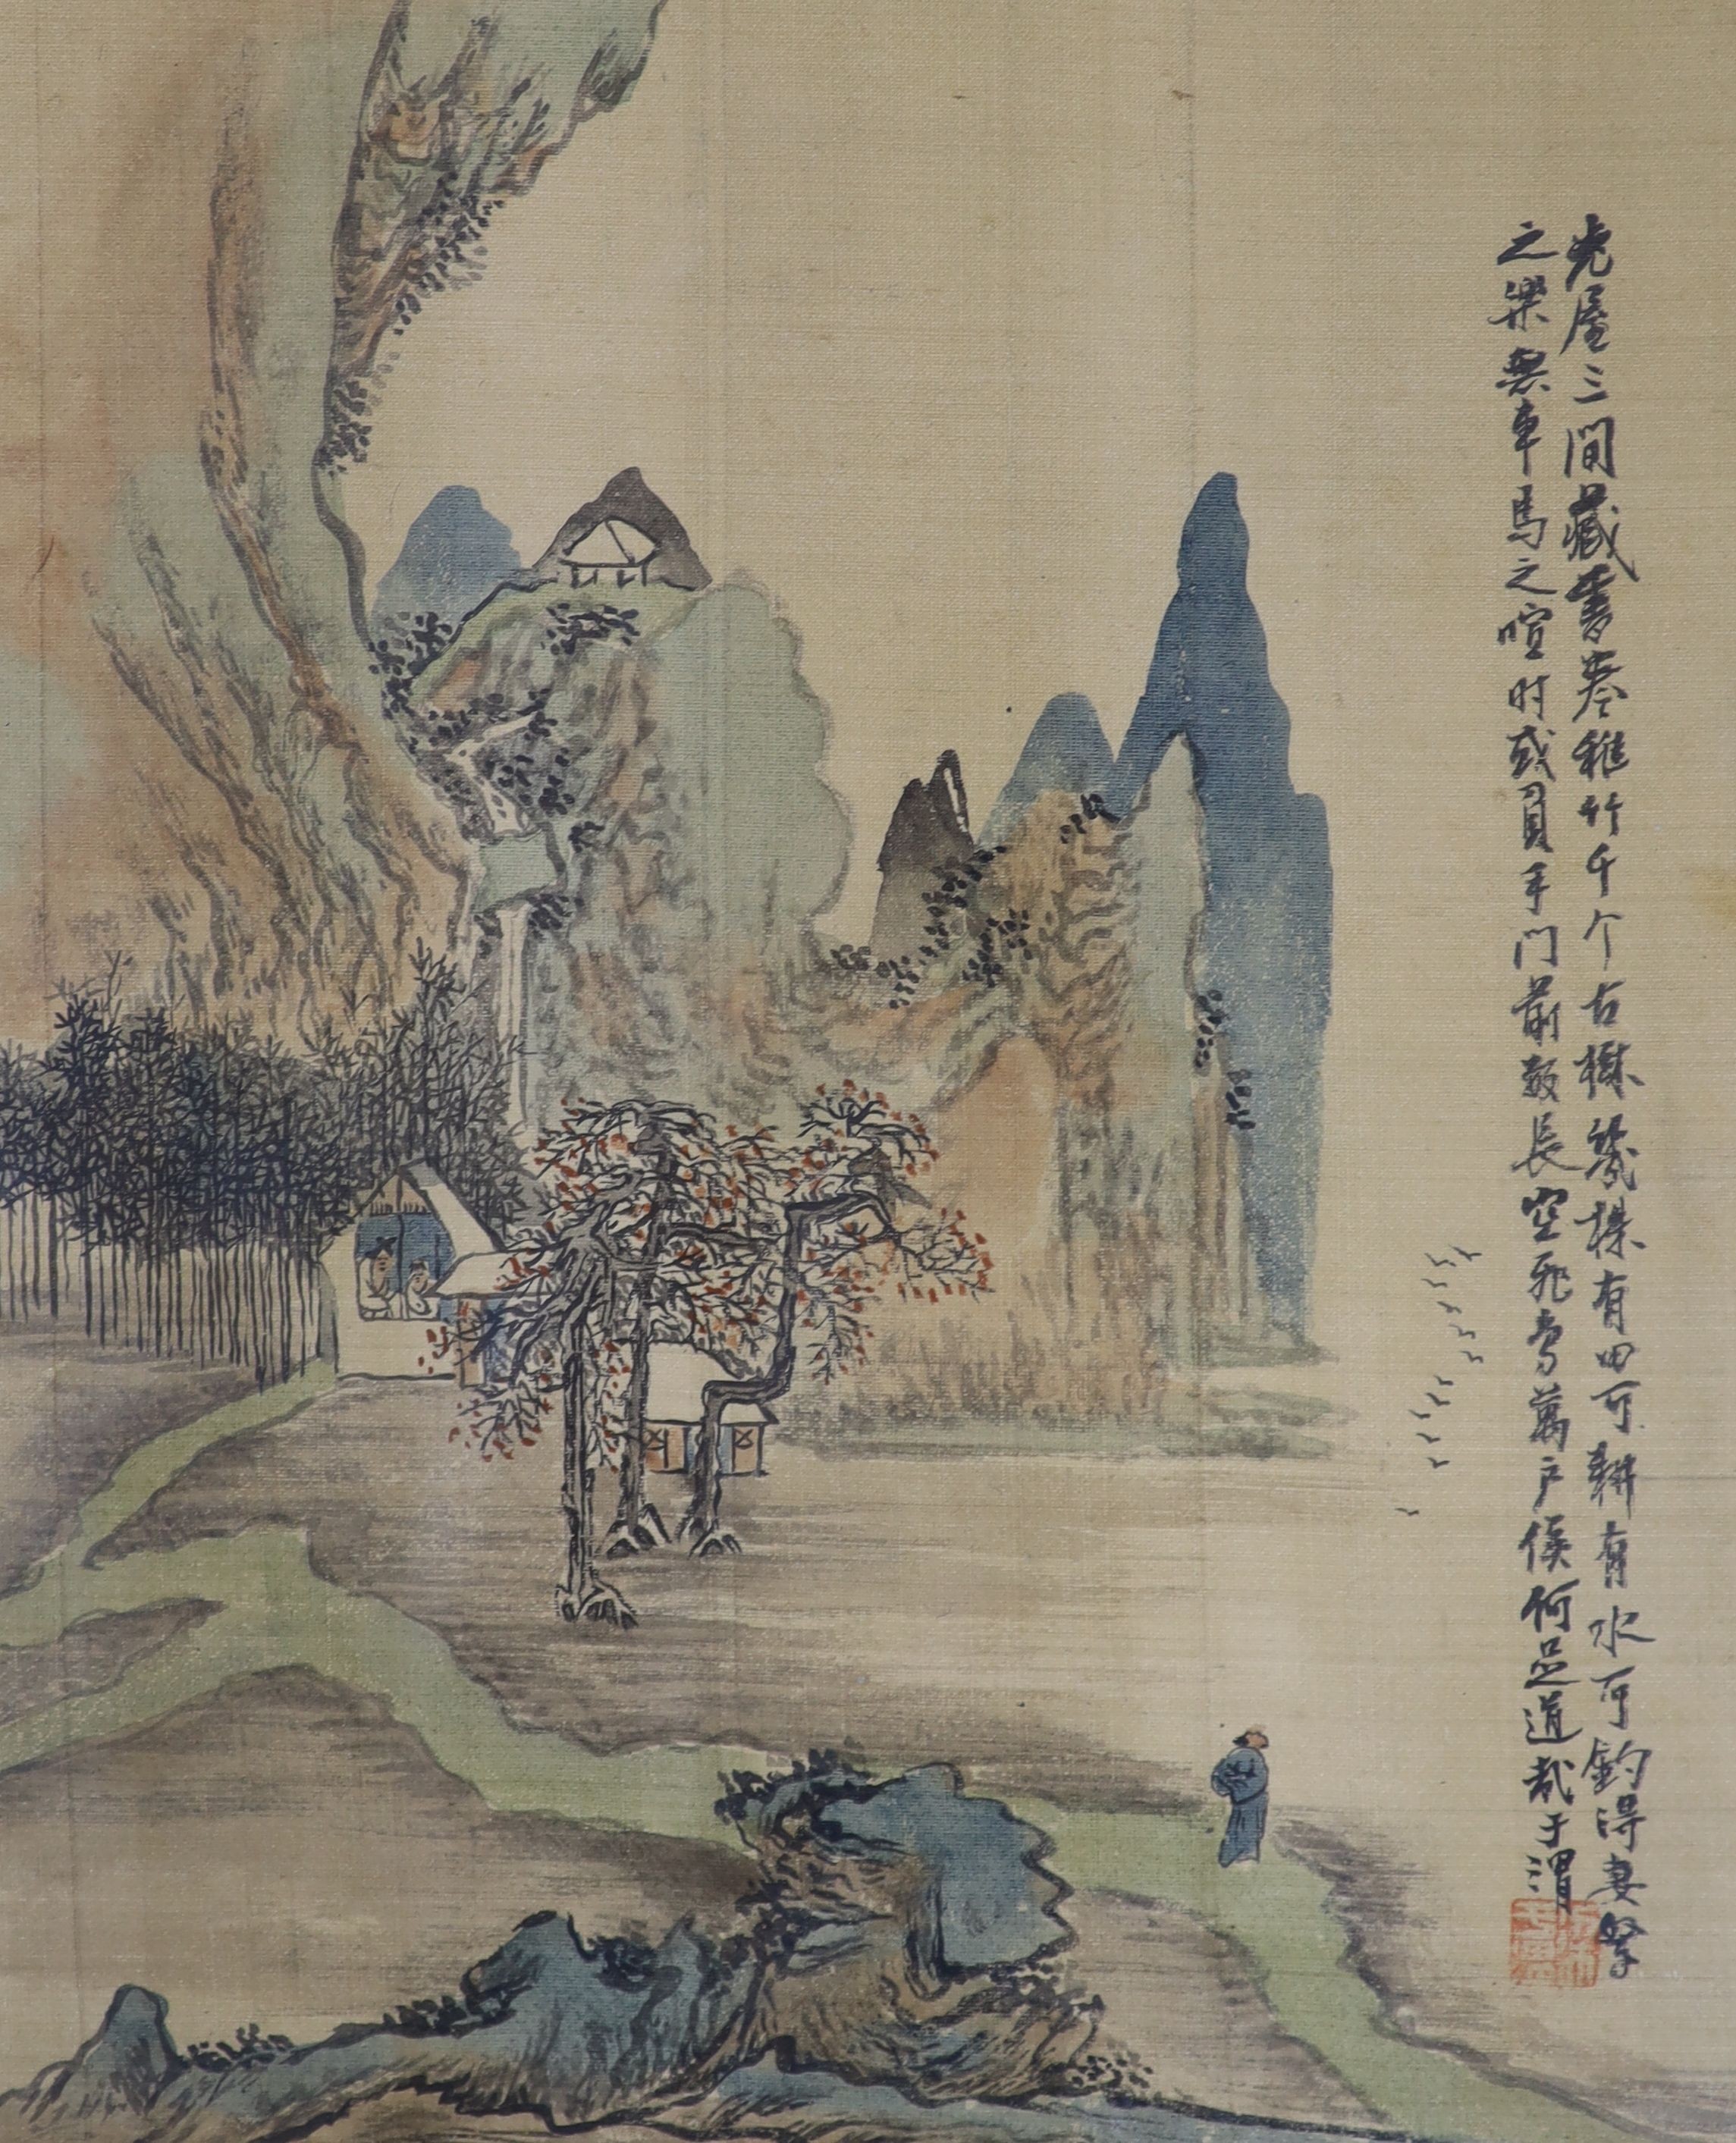 老屋三間藏書卷稚竹千个古樹幾株有田可耕有水可釣得妻孥
之樂無車馬之喧时或負手門前數長空飛鳥萬户侯何足道哉子渭